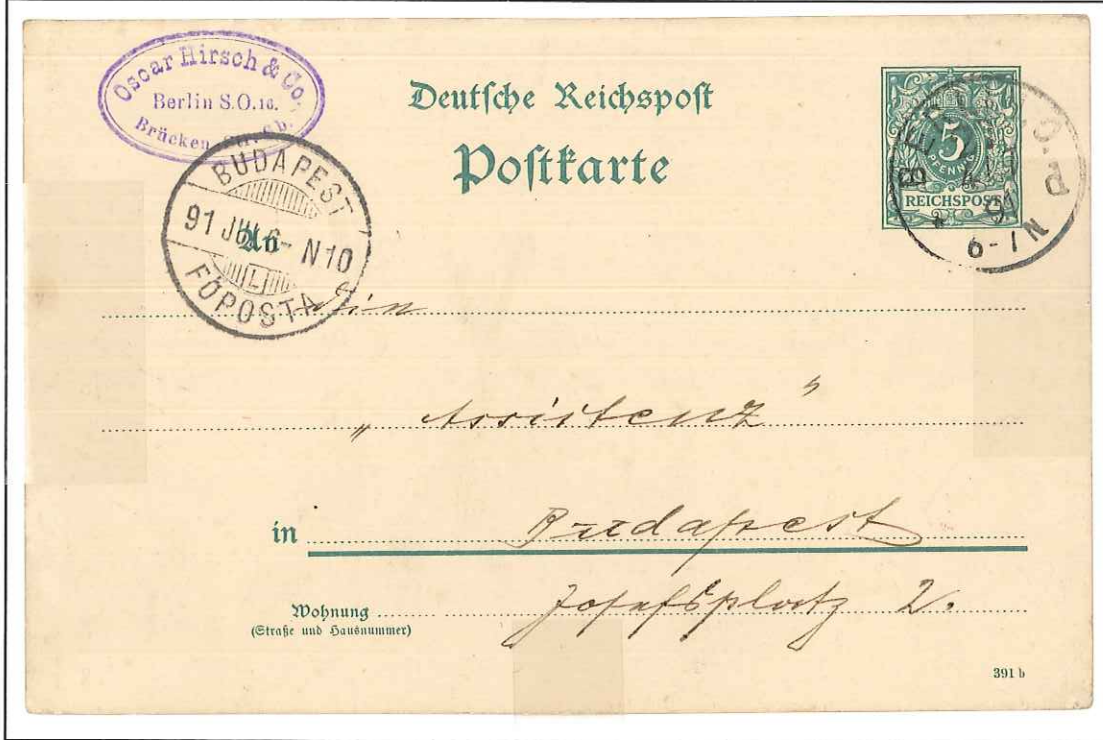 Oscar Hirsch & Co.
Berlin S.O. 16.
Brücken
Deutsche Reichspost
Postkarte
5
PFENNIG
REICHSPOST
6-7N
BUDAPEST
91 JUL 6- N10
L
FŐPOSTA
An
„Assistenz"
in Budapest
Wohnung Josefsplatz 2.
(Straße und Hausnummer)
391 b